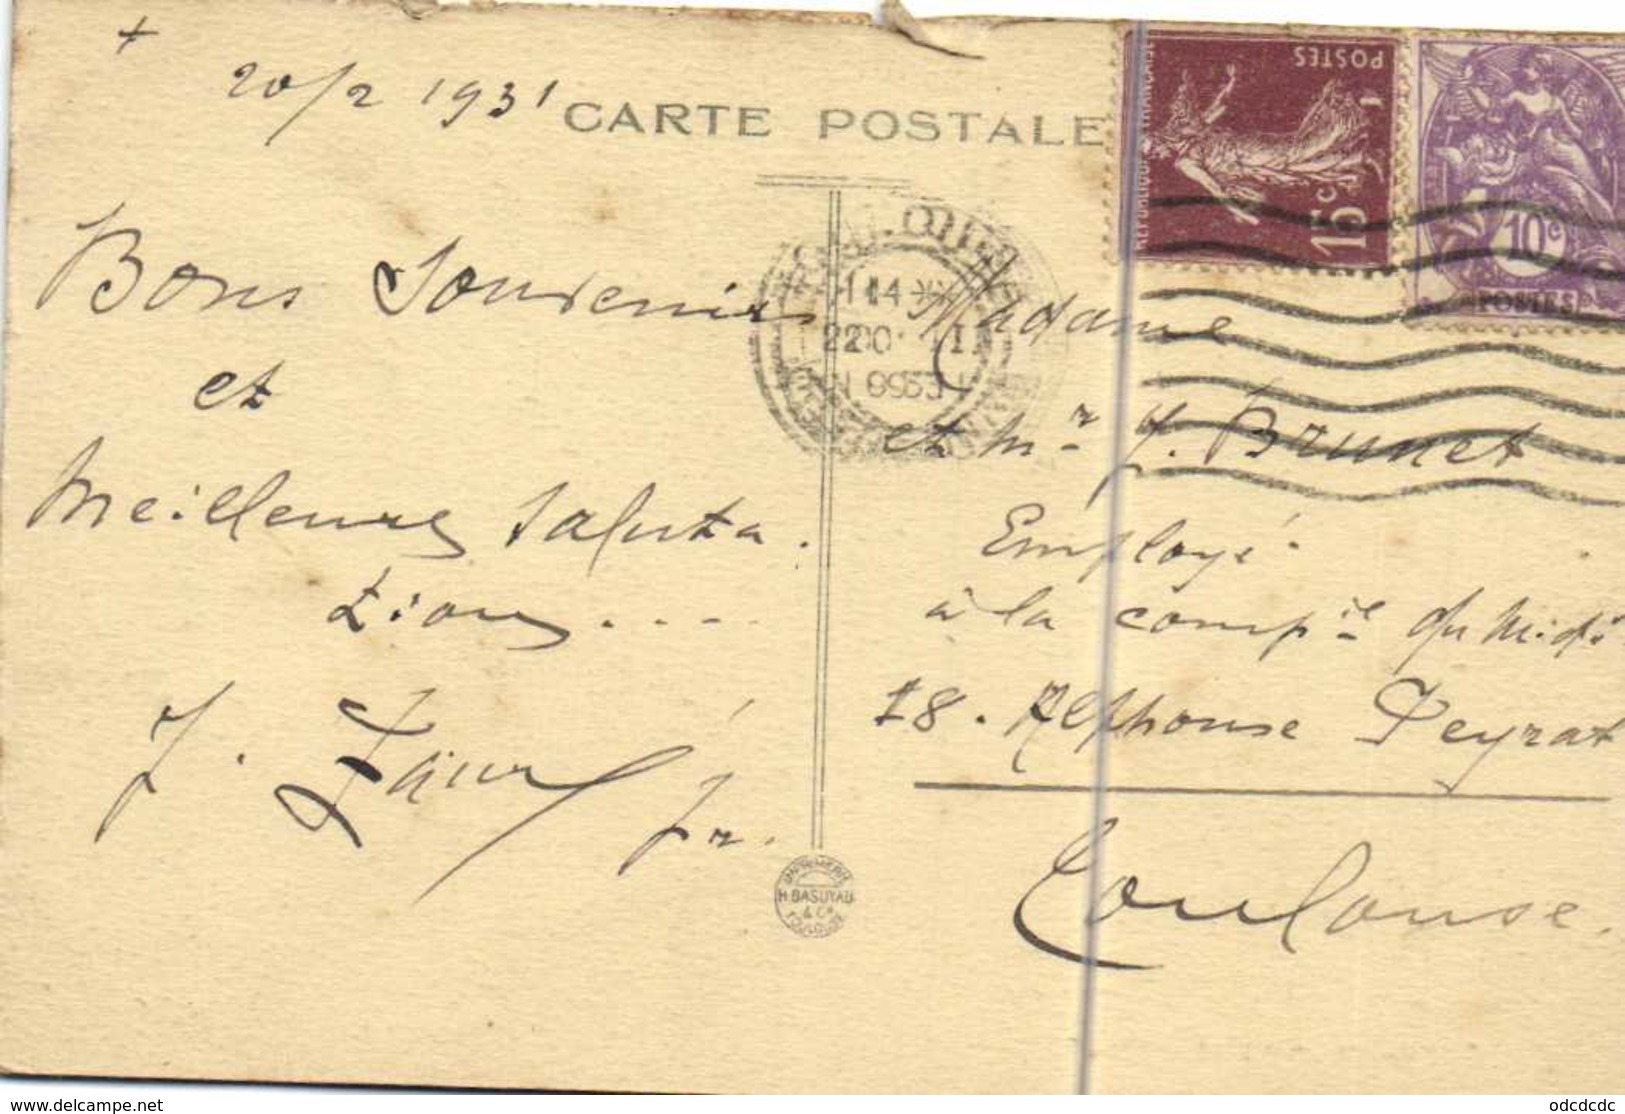 20/2 1931
CARTE POSTALE
Bons Souvenirs
et
Meilleures saluta.
tions....
J. Faur Jr.
Madame
et Mr J. Brunet
Employé
à la compie du Midi
18. Alphonse Peyrat
Toulouse.
POSTES
15c
10c
POSTES
14
1931
IMPRIMERIE
H. BASUYAU
& Cie
TOULOUSE
www.delcampe.net
odcdcdc